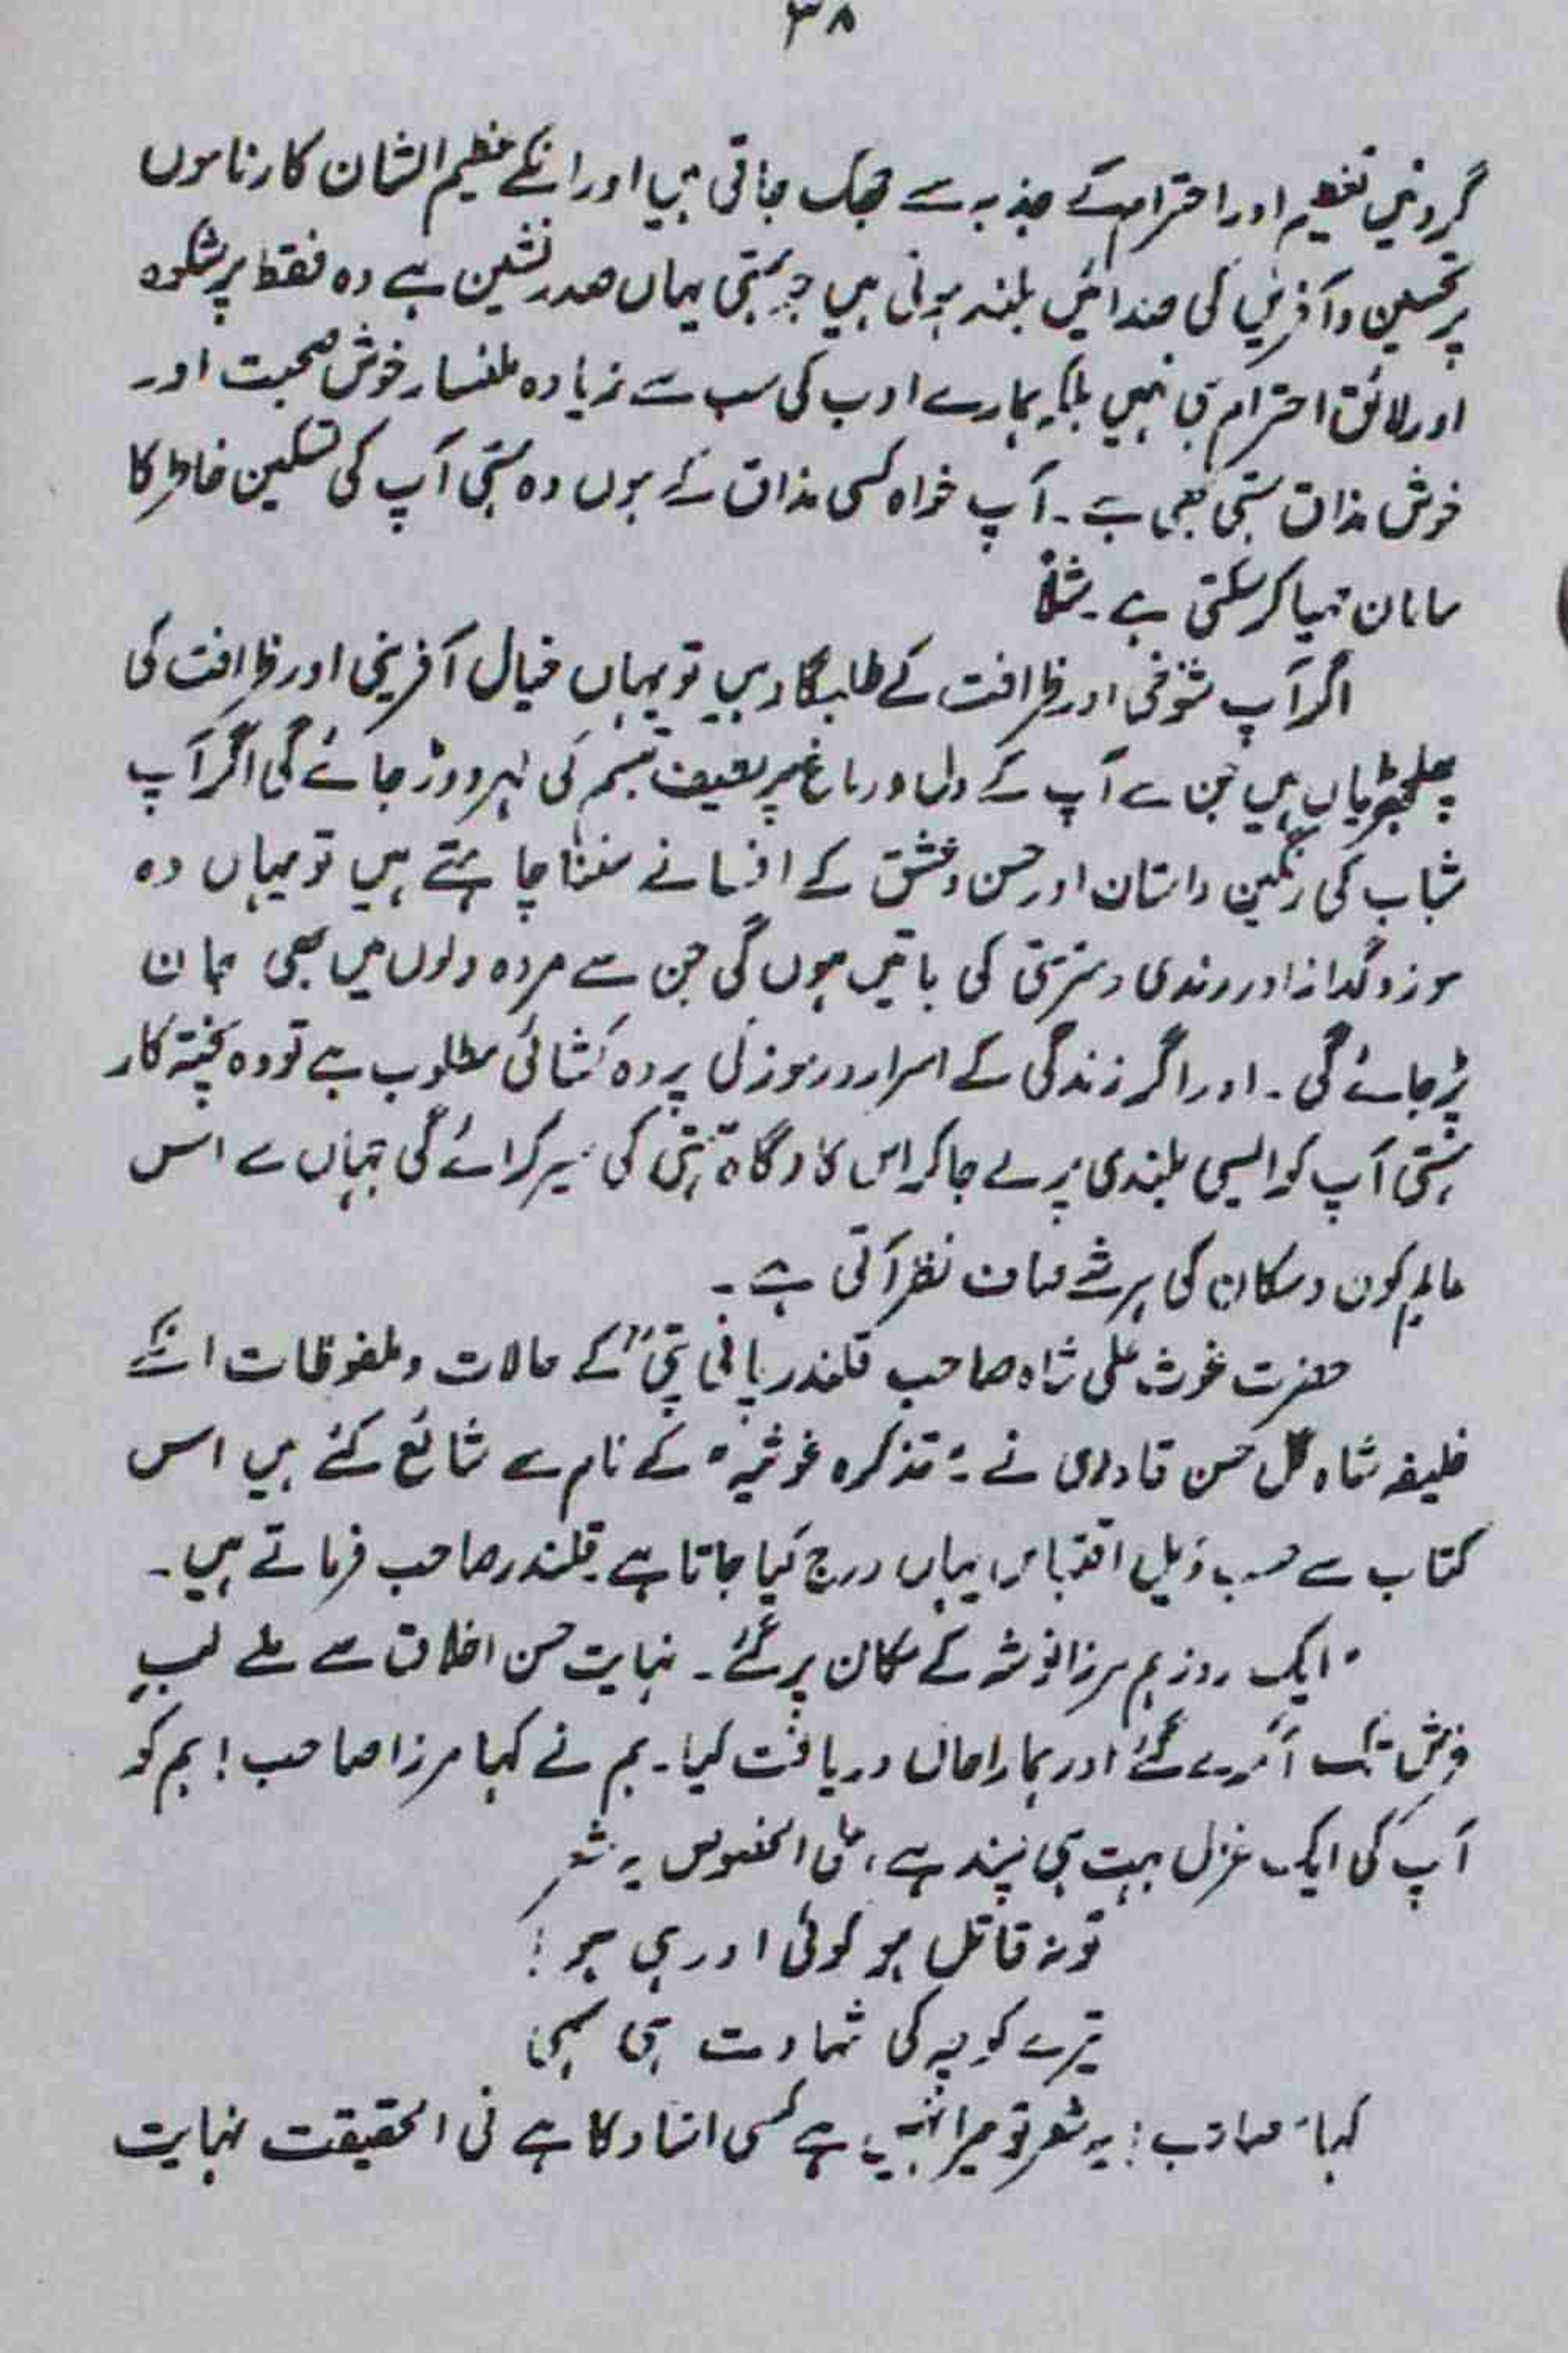 ۳۸
گردنیں تعظیم اور احترام کے جذبہ سے جھک جاتی ہیں اور انکے عظیم الشان کارناموں
پر تحسین و آفرین کی صدائیں بلند ہوتی ہیں جو ہستی یہاں صدر نشین ہے وہ فقط پر شکوہ
اور لائق احترام ہی نہیں بلکہ ہمارے ادب کی سب سے زیادہ ملنسار خوش صحبت اور
خوش مذاق ہستی بھی ہے۔ آپ خواہ کسی مذاق کے ہوں وہ ہستی آپ کی تسکین خاطر کا
سامان مہیا کر سکتی ہے۔ مثلاً
اگر آپ شوخی اور ظرافت کے طلبگار ہیں تو یہاں خیال آفرینی اور ظرافت کی
پھلجھڑیاں ہیں جن سے آپ کے دل و دماغ پر لطیف تبسم کی لہر دوڑ جائے گی اگر آپ
شباب کی رنگین داستان اور حسن و عشق کے افسانے سننا چاہتے ہیں تو یہاں وہ
سوز و گداز اور رندی و سرمستی کی باتیں ہوں گی جن سے مردہ دلوں میں بھی جان
پڑ جائے گی۔ اور اگر زندگی کے اسرار و رموز کی پردہ کشائی مطلوب ہے تو وہ پختہ کار
ہستی آپ کو ایسی بلندی پر لے جا کر اس کارگاہ ہستی کی سیر کرائے گی جہاں سے اس
عالم کون و مکان کی ہر شے صاف نظر آتی ہے۔
حضرت غوث علی شاہ صاحب قلندر پانی پتیؒ کے حالات و ملفوظات انکے
خلیفہ شاہ گل حسن قادری نے "تذکرہ غوثیہ" کے نام سے شائع کئے ہیں اس
کتاب سے حسب ذیل اقتباس یہاں درج کیا جاتا ہے قلندر صاحب فرماتے ہیں۔
"ایک روز ہم مرزا نوشہ کے مکان پر گئے۔ نہایت حسن اخلاق سے ملے لبِ
فرش تک آکر لے گئے اور ہمارا حال دریافت کیا۔ ہم نے کہا مرزا صاحب! ہم کو
آپ کی ایک غزل بہت ہی پسند ہے، علی الخصوص یہ شعر
تو نہ قاتل ہو کوئی اور ہی ہو!
تیرے کوچہ کی شہادت ہی سہی
کہا صاحب! یہ شعر تو میرا نہیں ہے کسی استاد کا ہے فی الحقیقت نہایت